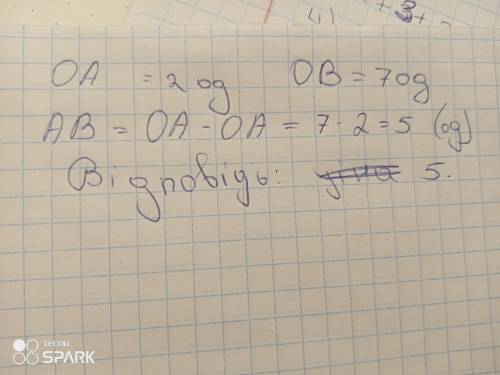 41 + 3 +
OA = 2 од OB = 7 од
AB = OA - OA = 7 - 2 = 5 (од)
Відповідь: 5.
TECNO
SPARK